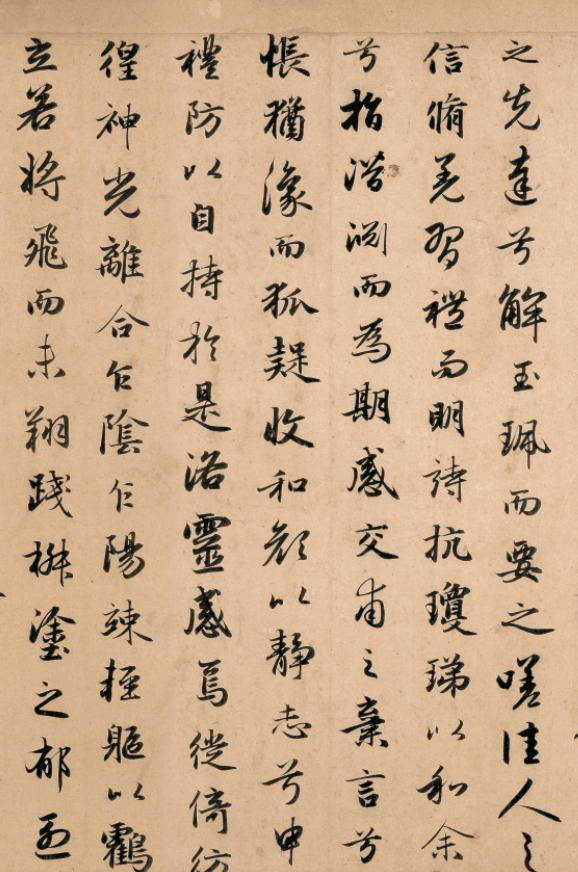 之先達兮解玉珮而要之嗟佳人之
信脩羌習禮而明詩抗瓊珶以和余
兮指潛渕而為期感交甫之棄言兮
悵猶豫而狐疑收和顏以靜志兮申
禮防以自持於是洛靈感焉徙倚彷
徨神光離合乍陰乍陽竦輕軀以鶴
立若將飛而未翔踐椒塗之郁烈